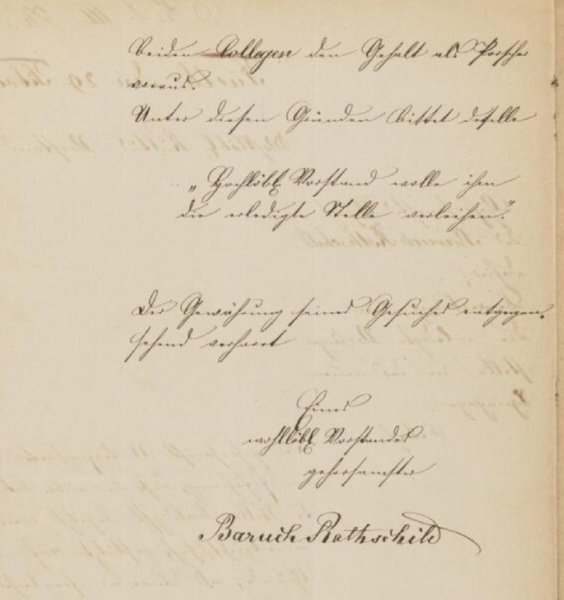 beiden Collegen den Gehalt als Forscher
voraus.
Unter diesen Gründen bittet derselbe
„Hochlöbl. Vorstand wolle ihm
die erledigte Stelle verleihen.“
Der Gewährung seines Gesuches entgegen-
sehend verharrt
Eines
wohllöbl. Vorstandes
gehorsamster
Baruch Rothschild